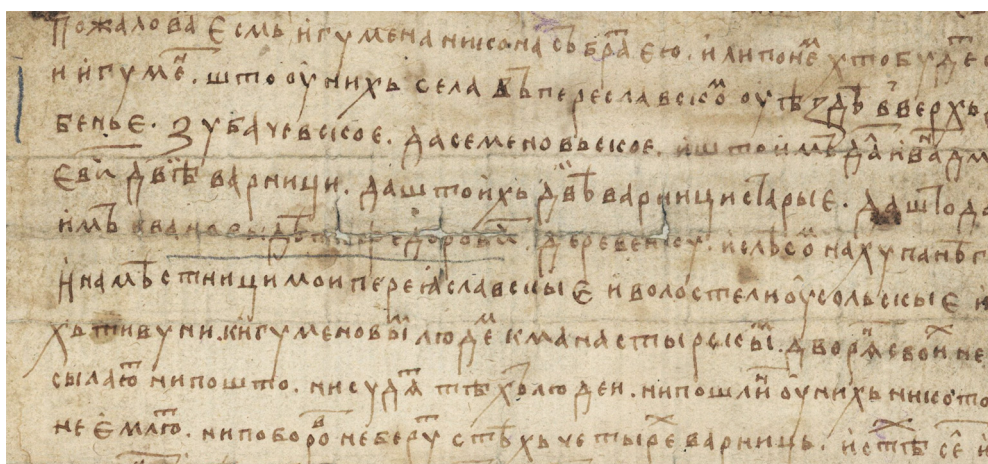 Пожаловал есмь игумена никона съ братею. или по нем хто будет
и игумен. што оу нихъ села въ переславском оуѣздѣ в верхъ
бенье. Зубачевьское. да семеновьское. и што имъ дал иван дм
еви двѣ варници. да што ихъ двѣ варници старые. да што да
имъ деревеньку. и сельцо на
и намѣстници мои переяславскые и волостели оусольскые и
хъ тивуни. к игуменовым людем к манастырьскым. дворян своих не
сылают ни по што. ни судят тѣх людеи. ни пошлин оу нихъ никото
не емлют. ни поборов не берут с тѣхъ четырех варниць. и с тѣх